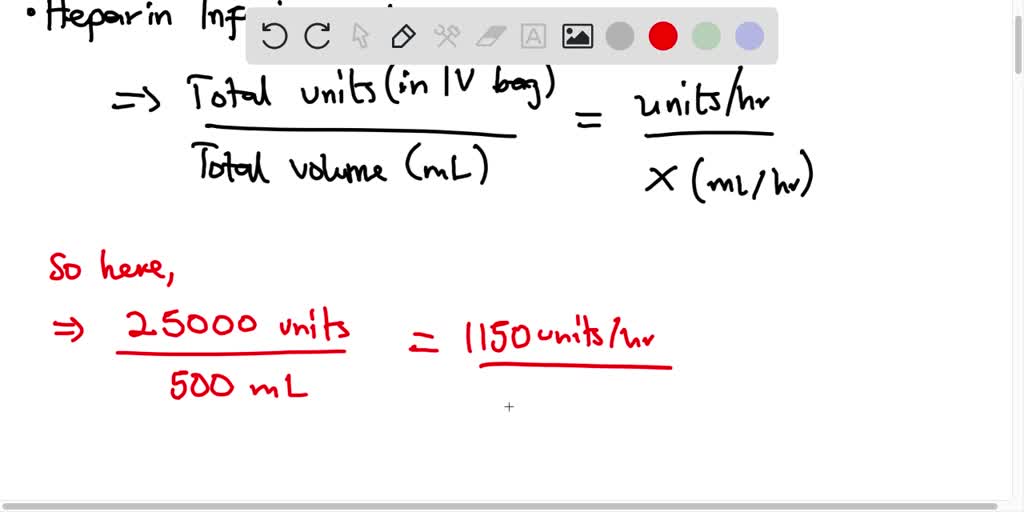 • Heparin Inf
⇒ Total units (in IV bag) / Total volume (mL) = units/hr / X (mL/hr)
So here,
⇒ 25000 units / 500 mL = 1150 units/hr